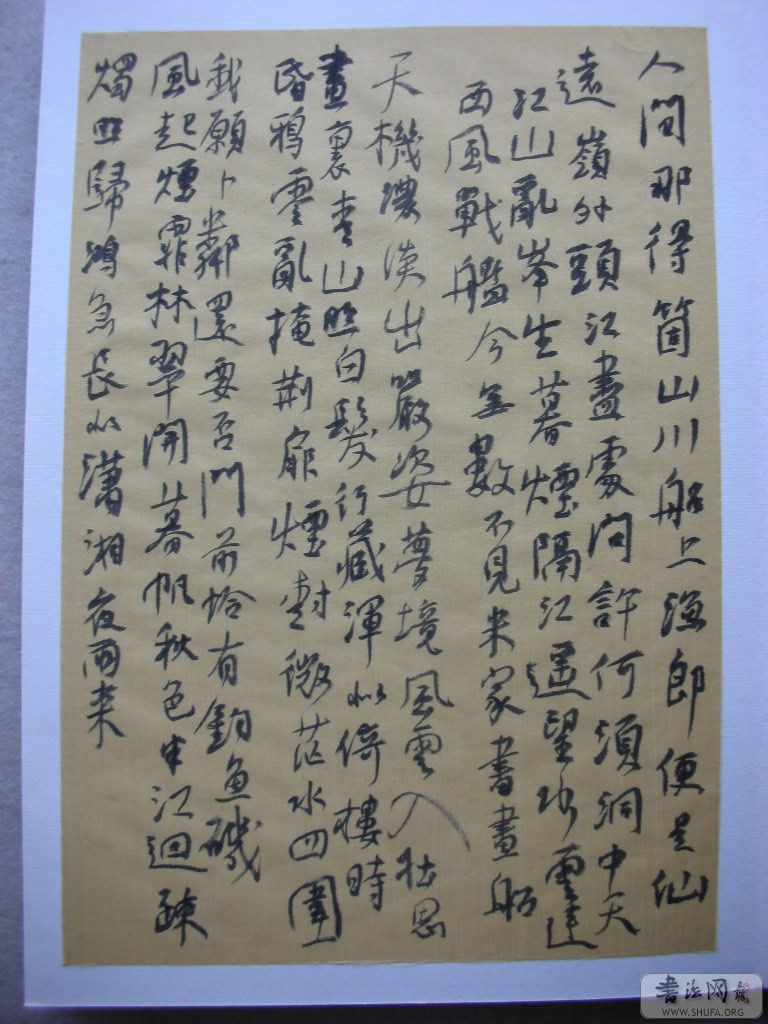 人間那得箇山川船上漁郎便是仙
遠嶺外頭江盡處問許何須洞中天
江山亂峯生暮煙隔江遙望水雲連
西風戰艦今無數不見米家書畫船
天機濃淡出嚴姿夢境風雲入壯思
畫裏青山照白髮行藏渾似倚樓時
昏鴉零亂掩荊扉煙樹微茫水四圍
我願卜鄰還要否門前恰有釣魚磯
風起煙霏林翠開暮帆秋色半江迴疎
燭照歸鴻急長似瀟湘夜雨来
书法网
WWW.SHUFA.ORG